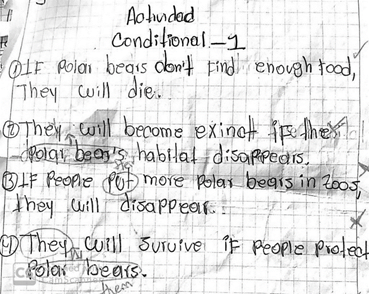 Actividad
Conditional - 1
① IF Polar bears don't find enough food,
They will die.
② They will become exinct if the
Polar bear's habitat disappears.
③ IF People put more Polar bears in zoos,
they will disappear.
④ They will survive if people protect
Polar bears.
them